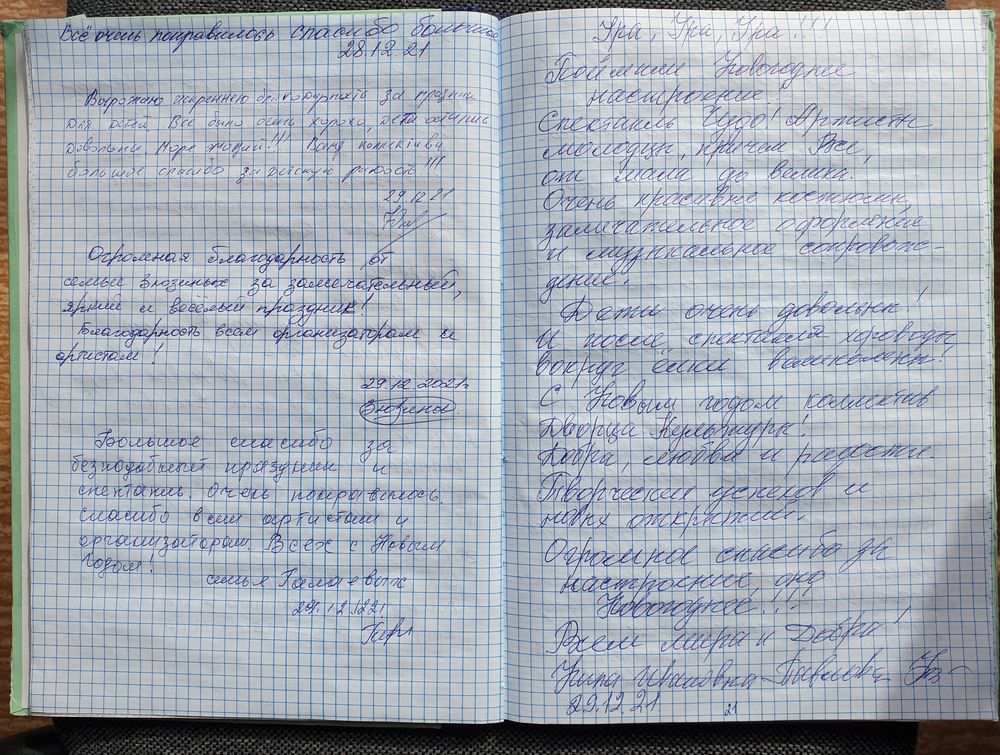 Всё очень понравилось спасибо большое
28.12.21
Выражаю искреннею благодарность за праздник
для детей. Все было очень хорошо, дети остались
довольны. Море эмоций!!! Вашу коллективу
большое спасибо за детскую радость!!!
29.12.21
Огромная благодарность от
семьи Зюзиных за замечательный,
яркий и весёлый праздник!
Благодарность всем организаторам и
артистам!
29.12.2021г
Зюзины.
Большое спасибо за
бесподобный праздник и
спектакль. Очень понравилось,
спасибо всем артистам и
организаторам. Всех с Новым
Годом!
семья Гамаевых
29.12.2021
Ура, Ура, Ура!!!
Поймали Новогоднее
настроение.
Спектакль Чудо! Артисты
молодцы, причем Все,
от мала до велика.
Очень красивые костюмы,
замечательное оформление
и музыкальное сопровож-
дение.
Дети очень довольны!
И после спектакля хороводы
вокруг ёлки великолепны!
С Новым годом коллектив
Дворца Культуры!
Добра, любви и радости
Творческих успехов и
новых открытий.
Огромное спасибо за
настроение, оно
Новогоднее!!!
Всем мира и Добра!
Нина Ивановна Павлова
29.12.21.
21